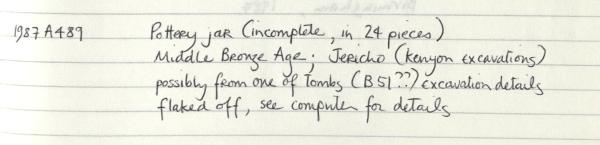 1987A489 Pottery jar (incomplete, in 24 pieces)
Middle Bronze Age; Jericho (Kenyon excavations)
possibly from one of Tombs (B51??) excavation details
flaked off, see computer for details